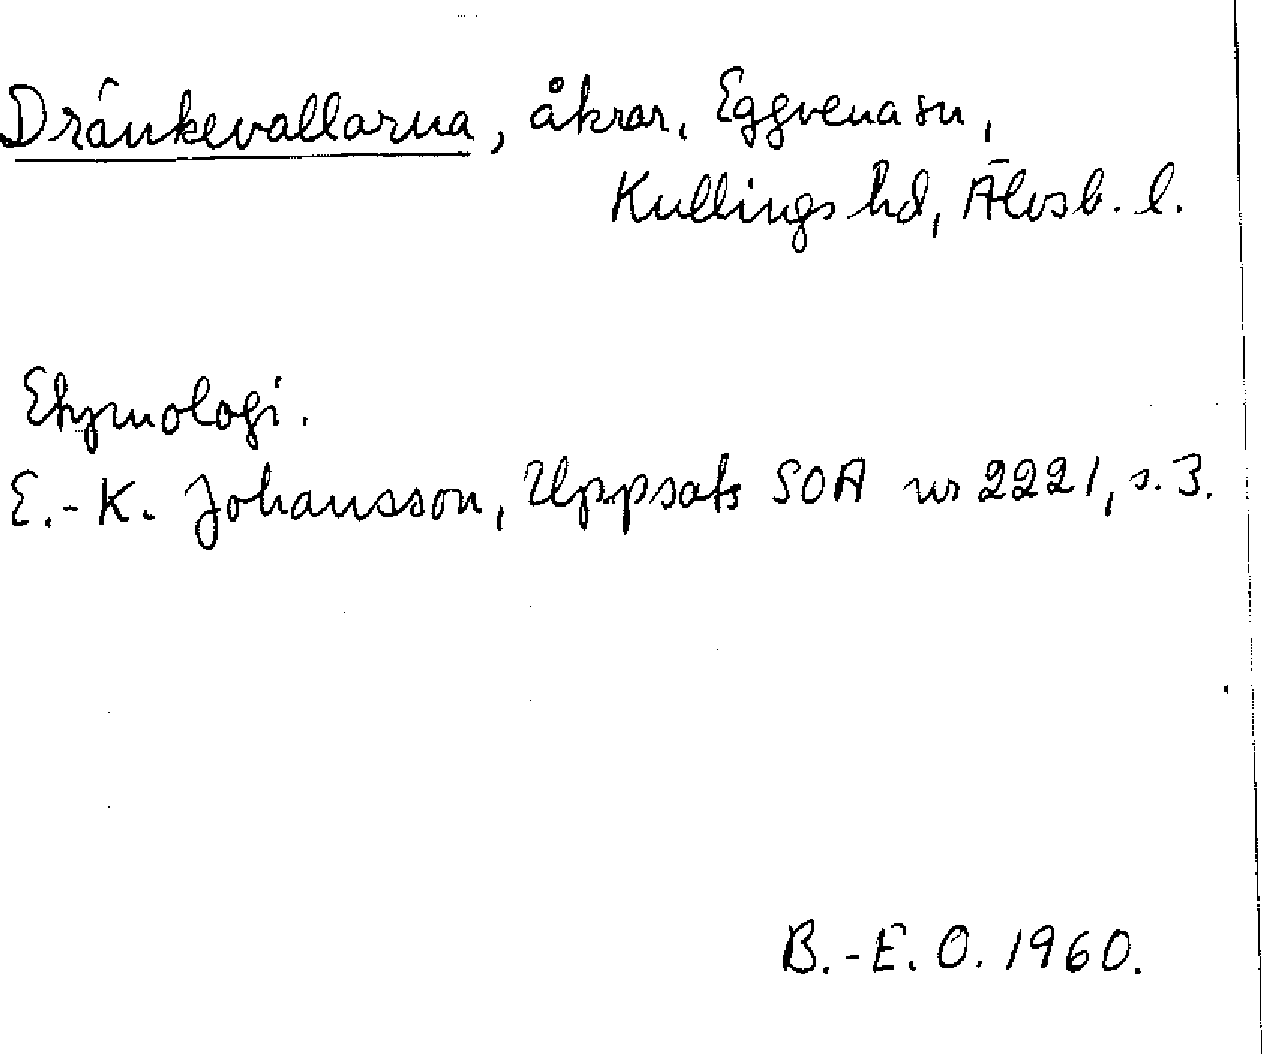 Dränkevallarna, åkrar, Eggvena sn,
Kullings hd, Älvsb. l.
Etymologi.
E.-K. Johansson, Uppsats SOA nr 2221, s. 3.
B.-E. O. 1960.